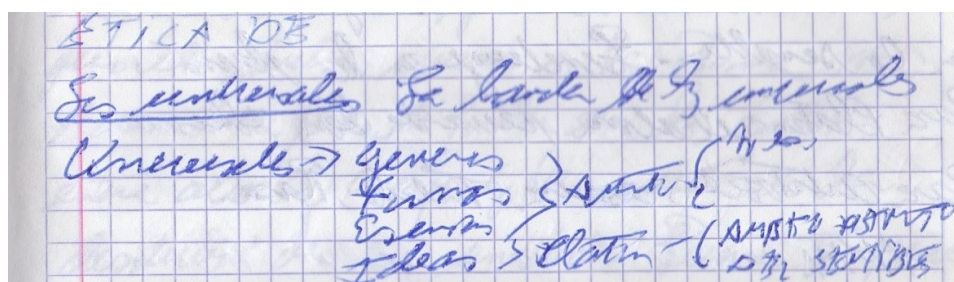 ETICA DE
Los universales La banda de los universales
Universales → Generos
Formas } Arist {
Esencias
Ideas } Platón { AMBITO DISTINTO
DEL SENSIBLE